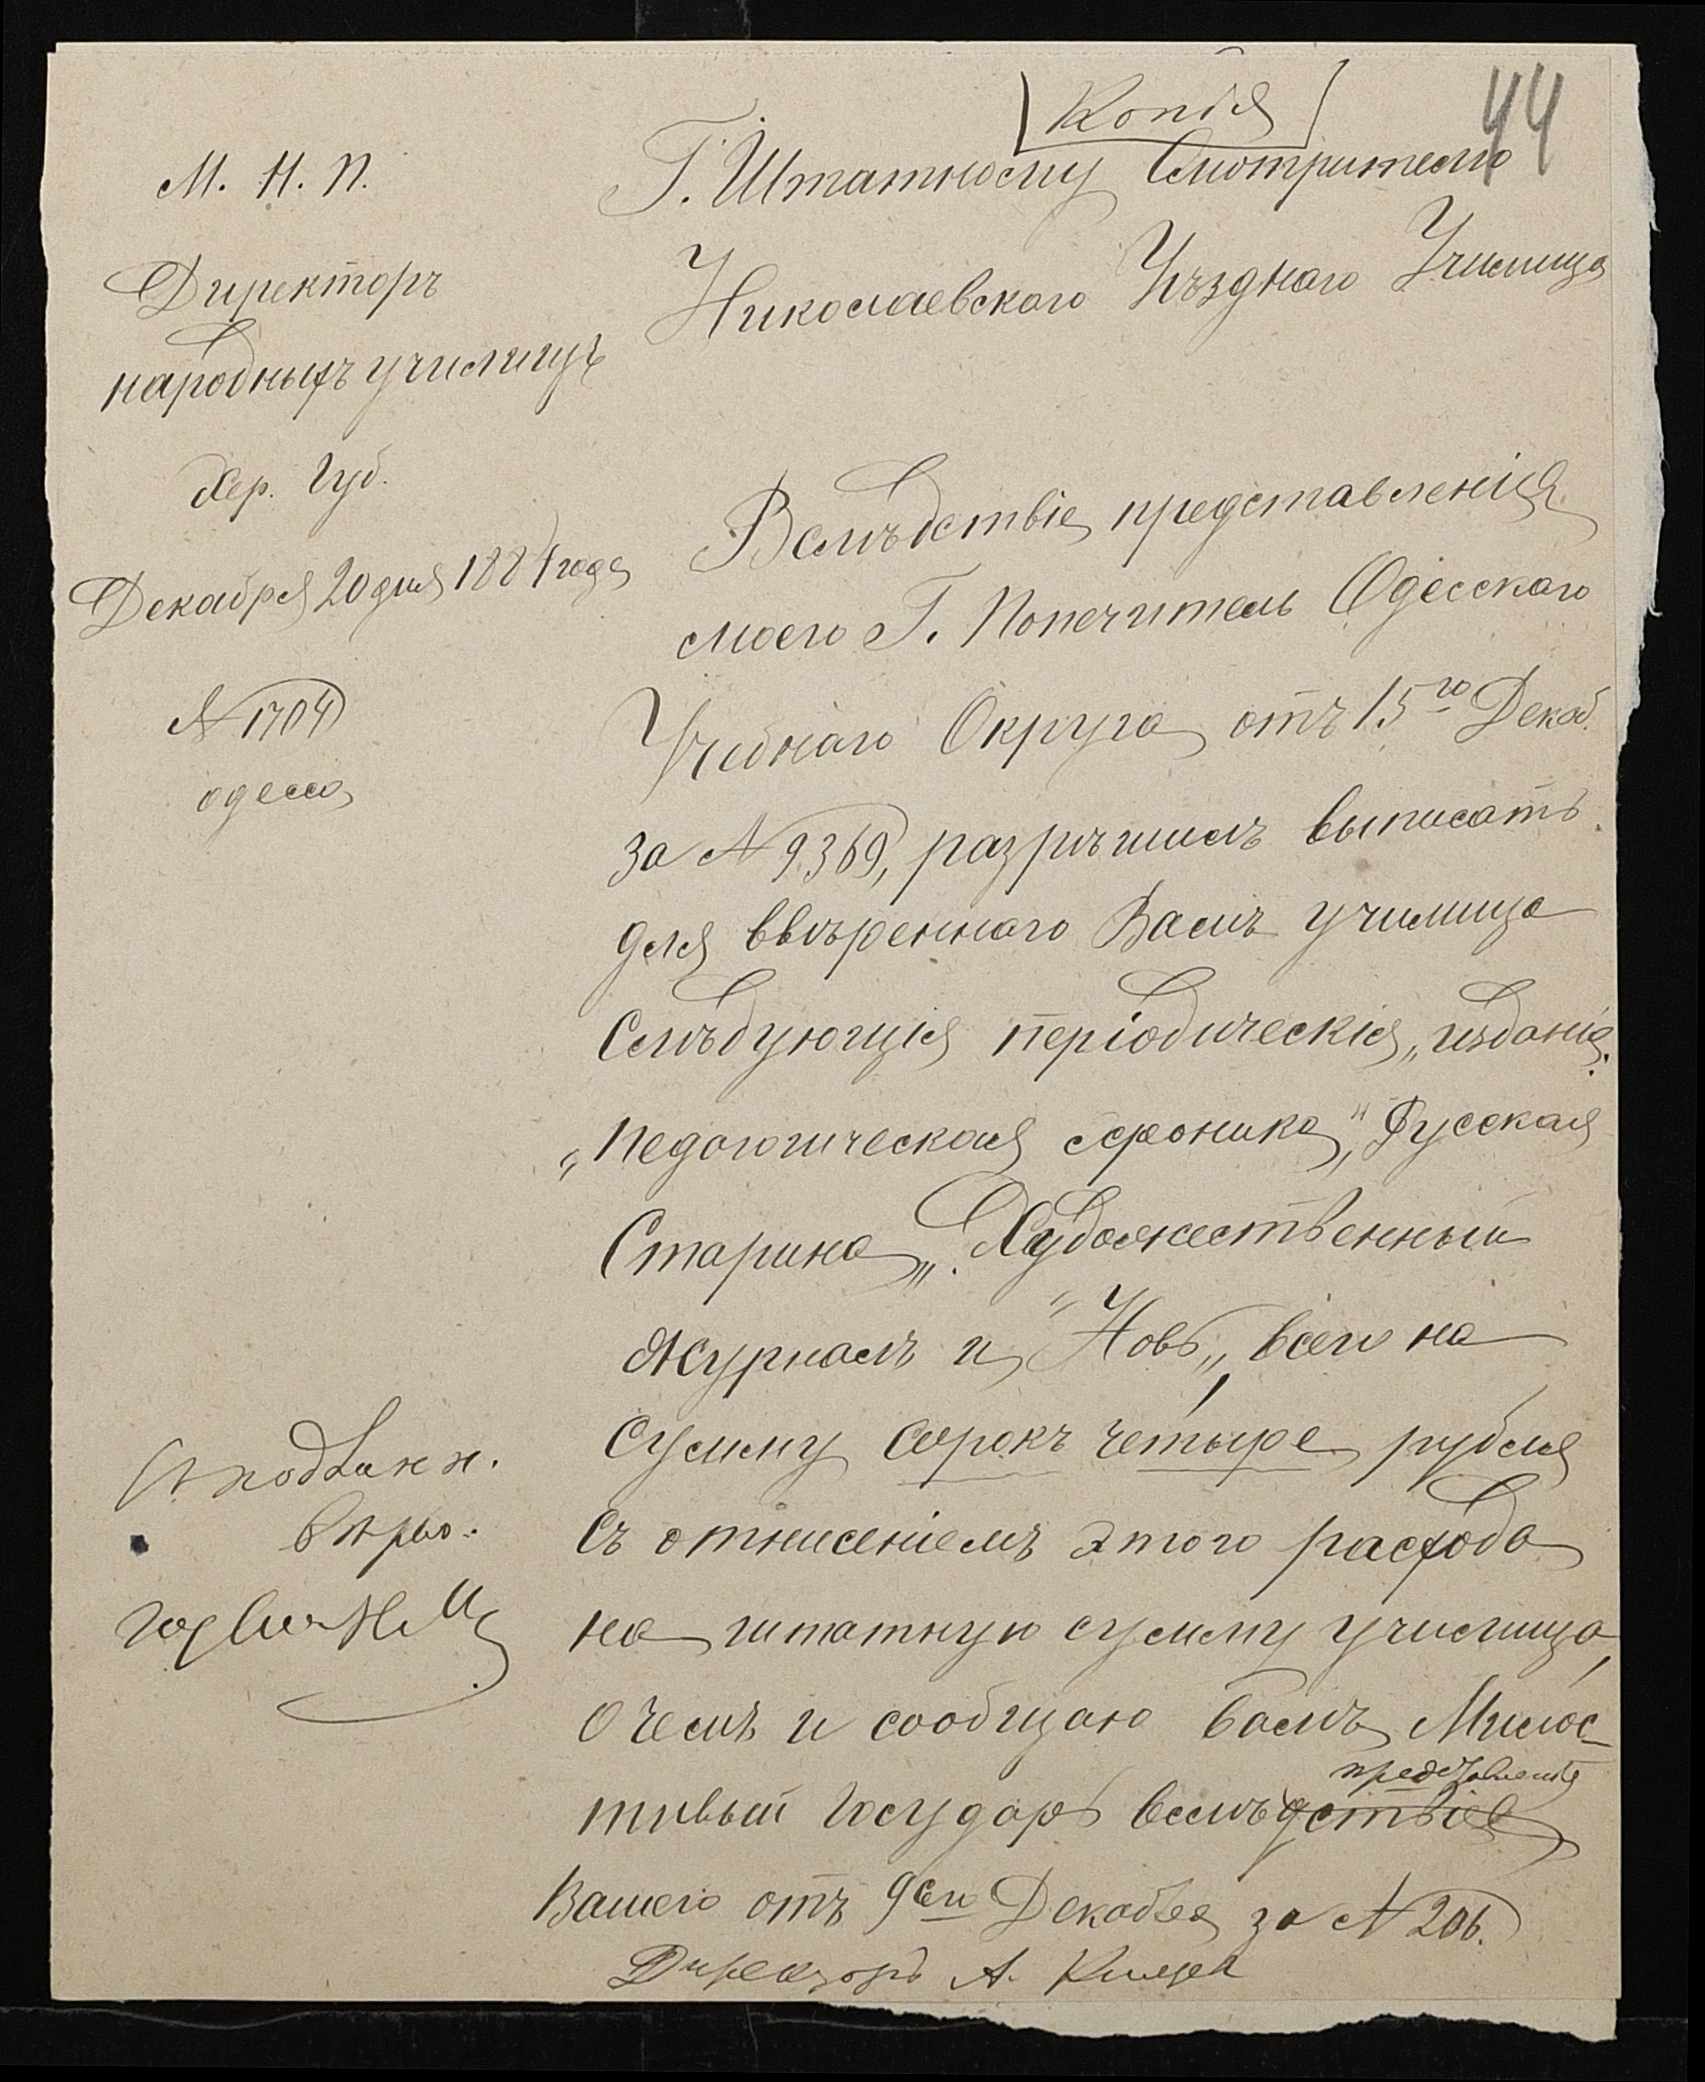 Копія
44
М. Н. П.
Директоръ
народныхъ училищъ
Хер. Губ.
Декабря 20 дня 1884 года
№ 1704
Одесса
Г. Штатному Смотрителю
Николаевского Уѣзднаго Училища
Вслѣдствіе представленія
моего Г. Попечитель Одесскаго
Учебнаго Округа отъ 15го Декаб.
за № 9369, разрѣшилъ выписать
для ввѣреннаго Вамъ училища
Слѣдующія періодическія „изданія:
„Педагогическая хроника,“ Русская
Старина„. Художественный
журналъ и „Новь„, всего на
сумму сорокъ четыре рубля
съ отнесеніемъ этого расхода
на штатную сумму училища,
о чемъ и сообщаю Вамъ Милос-
тивый Государь вслѣдствіе
представленія
Вашего отъ 9его Декабря за № 206.
Директоръ А.
С подлинн.
вѣрно: